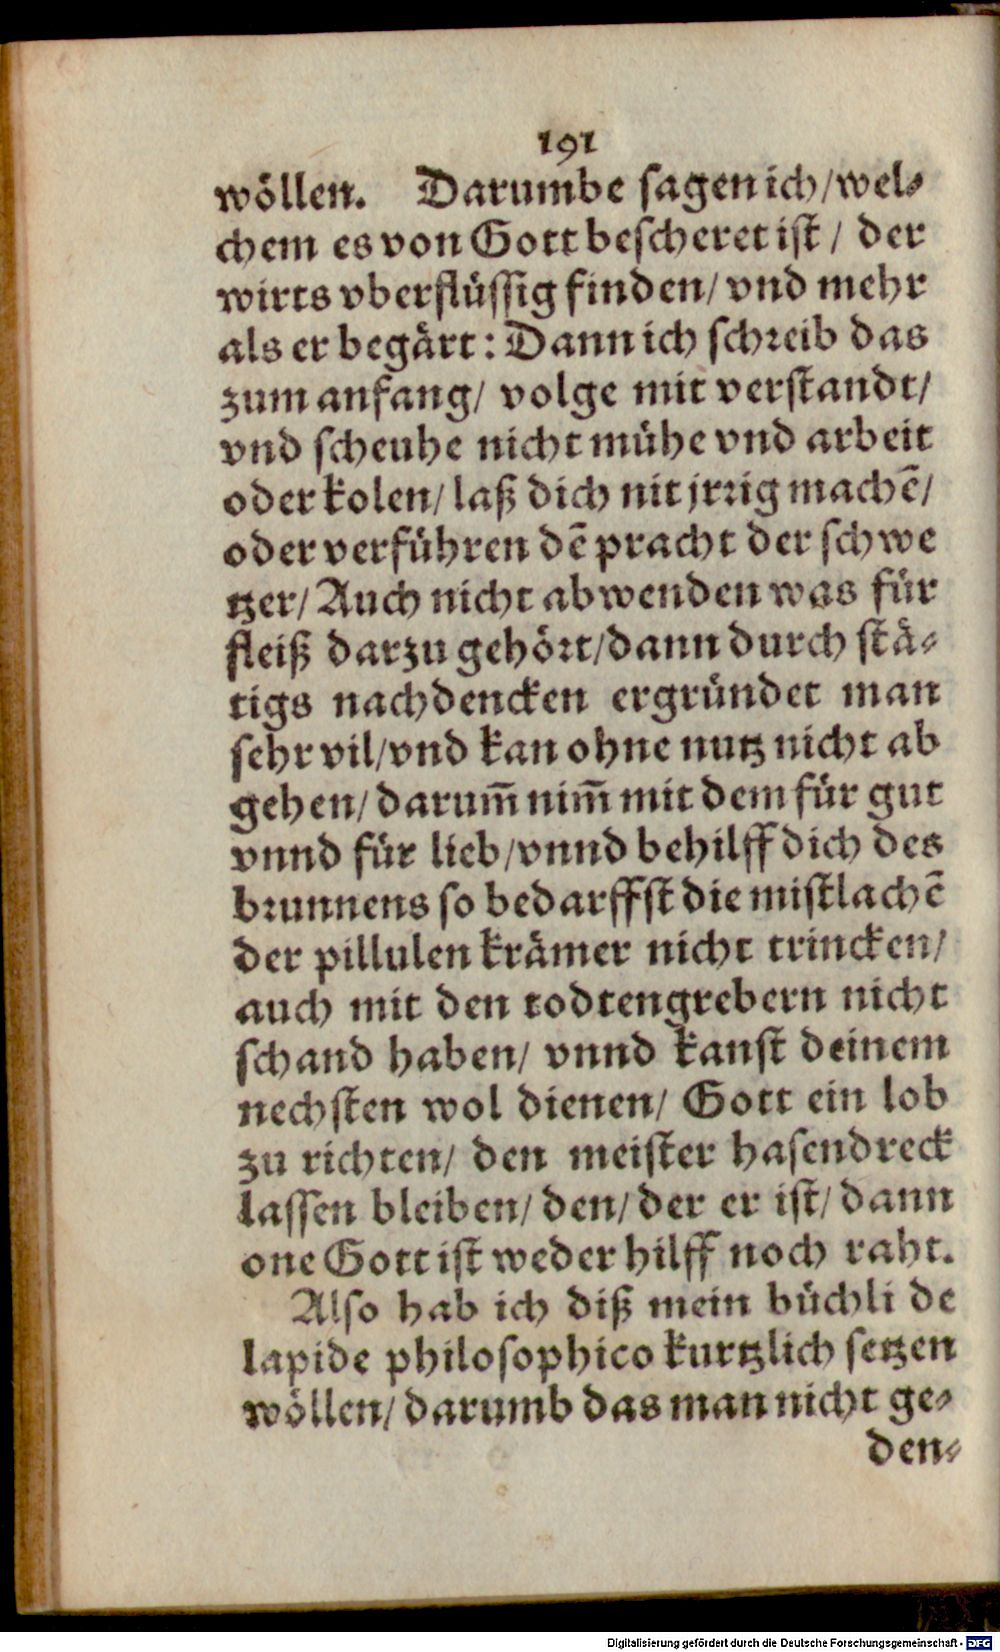 191
wöllen. Darumbe sagen ich/wel⸗
chem es von Gott bescheret ist / der
wirts vberflüssig finden/ vnd mehr
als er begärt: Dann ich schreib das
zum anfang/ volge mit verstandt/
vnd scheuhe nicht mühe vnd arbeit
oder kolen/ laß dich nit jrrig machẽ/
oder verführen dẽ pracht der schwe
tzer/ Auch nicht abwenden was für
fleiß darzu gehört/dann durch stä⸗
tigs nachdencken ergründet man
sehr vil/vnd kan ohne nutz nicht ab
gehen/ darum̃ nim̃ mit dem für gut
vnnd für lieb/vnnd behilff dich des
brunnens so bedarffst die mistlachẽ
der pillulen krämer nicht trincken/
auch mit den todtengrebern nicht
schand haben/ vnnd kanst deinem
nechsten wol dienen/ Gott ein lob
zu richten/ den meister hasendreck
lassen bleiben/ den/ der er ist/ dann
one Gott ist weder hilff noch raht.
Also hab ich diß mein büchli de
lapide philosophico kurtzlich setzen
wöllen/ darumb das man nicht ge⸗
den⸗
Digitalisierung gefördert durch die Deutsche Forschungsgemeinschaft - DFG